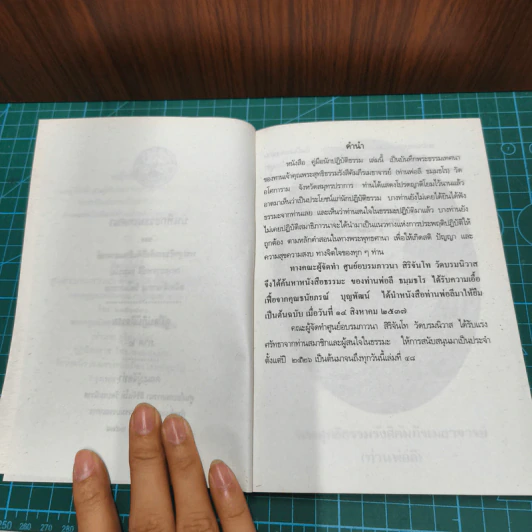 คำนำ
หนังสือ คู่มือนักปฏิบัติธรรม เล่มนี้ เป็นบันทึกพระธรรมเทศนา
ของท่านเจ้าคุณพระสุทธิธรรมรังสีคัมภีรเมธาจารย์ (ท่านพ่อลี ธมฺมธโร) วัด
อโศการาม จังหวัดสมุทรปราการ ท่านได้แสดงโปรดญาติโยมไว้นานแล้ว
อาตมาเห็นว่าเป็นประโยชน์แก่นักปฏิบัติธรรม บางท่านยังไม่เคยได้ยินได้ฟัง
ธรรมะจากท่านเลย และเห็นว่าท่านสนใจในธรรมะปฏิบัติมาแล้ว บางท่านยัง
ไม่เคยปฏิบัติสมาธิภาวนาจะได้นำมาเป็นแนวทางแห่งการประพฤติปฏิบัติให้
ถูกต้อง ตามหลักคำสอนในทางพระพุทธศาสนา เพื่อให้เกิดสติ ปัญญา และ
ความสุขความสงบ ทางจิตใจของทุก ๆ ท่าน
ทางคณะผู้จัดทำ ศูนย์อบรมภาวนา สิริจันโท วัดบรมนิวาส
จึงได้ค้นหาหนังสือธรรมะ ของท่านพ่อลี ธมฺมธโร ได้รับความเอื้อ
เฟื้อจากคุณธนัยภรณ์ บุญพัฒน์ ได้นำหนังสือท่านพ่อลีมาให้ยืม
เป็นต้นฉบับ เมื่อวันที่ ๑๔ สิงหาคม ๒๕๓๗
คณะผู้จัดทำศูนย์อบรมภาวนา สิริจันโท วัดบรมนิวาส ได้รับแรง
ศรัทธาจากท่านสมาชิกและผู้สนใจในธรรมะ ให้การสนับสนุนมาเป็นประจำ
ตั้งแต่ปี ๒๕๒๖ เป็นต้นมาจนถึงทุกวันนี้เล่มที่ ๔๘
250 260 270 280